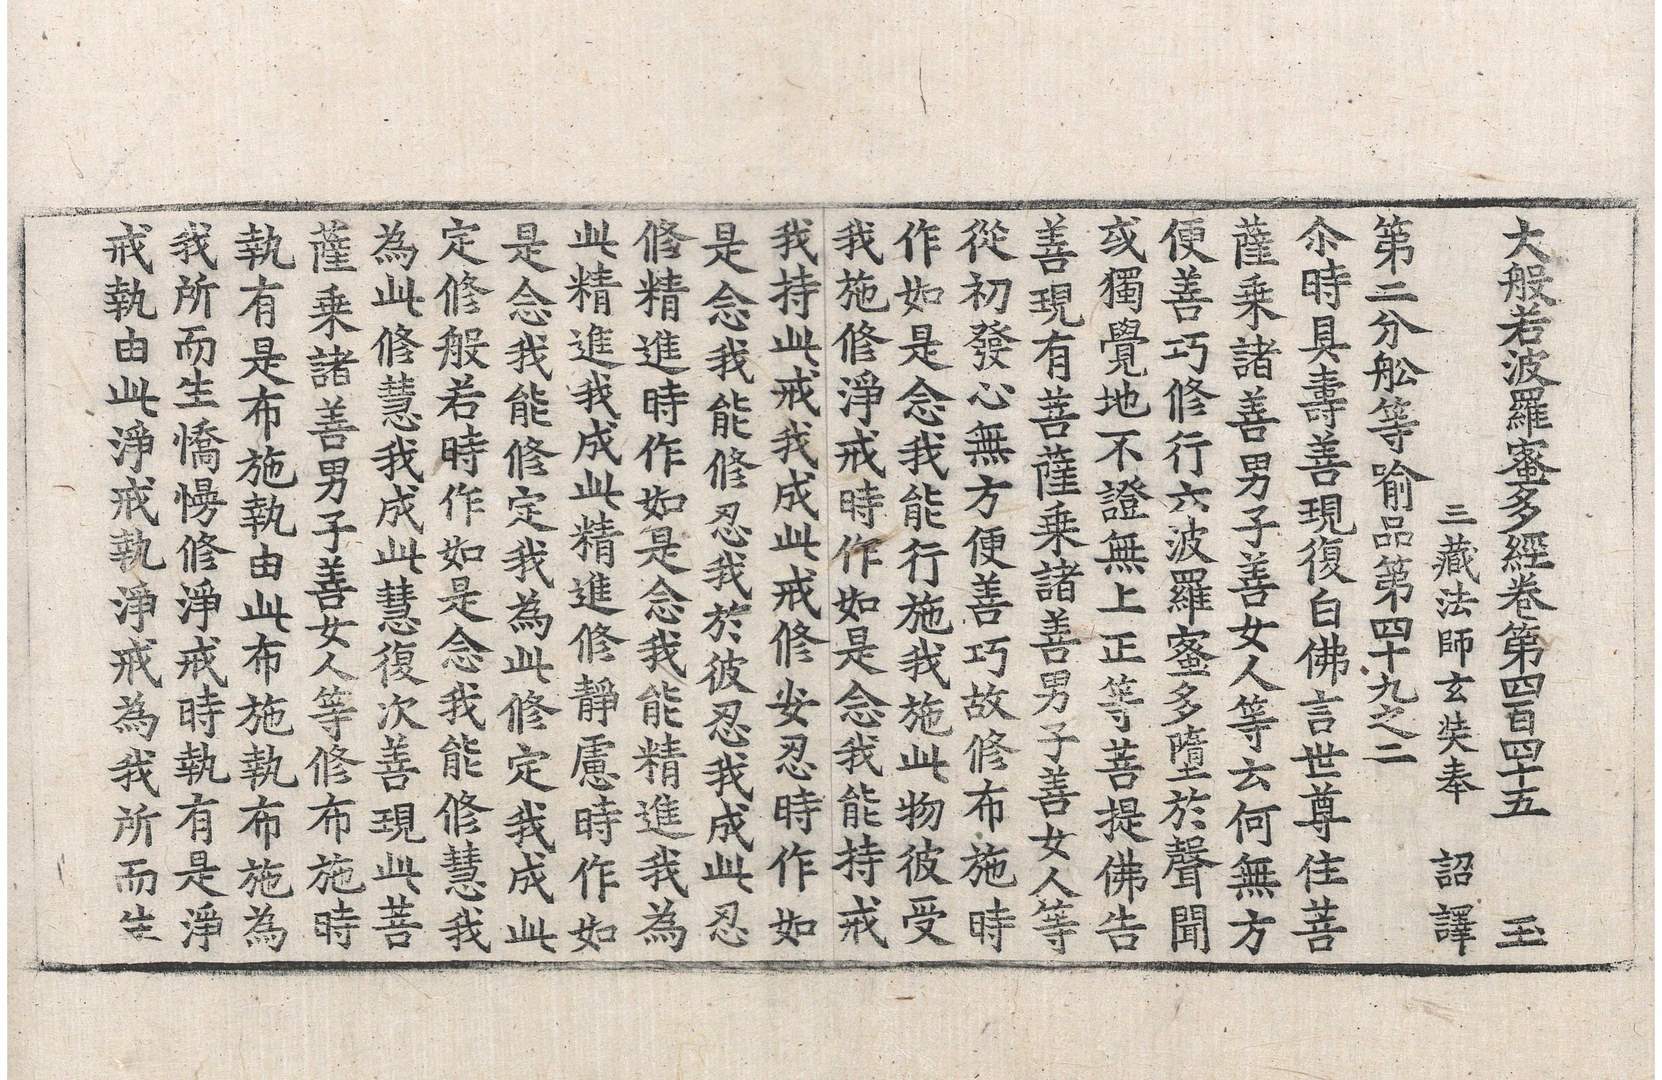 大般若波羅蜜多經卷第四百四十五　玉
三藏法師玄奘奉　詔譯
第二分舩等喻品第四十九之二
尒時具壽善現復白佛言世尊住菩
薩乗諸善男子善女人等云何無方
便善巧修行六波羅蜜多墮於聲聞
或獨覺地不證無上正等菩提佛告
善現有菩薩乗諸善男子善女人等
從初發心無方便善巧故修布施時
作如是念我能行施我施此物彼受
我施修淨戒時作如是念我能持戒
我持此戒我成此戒修安忍時作如
是念我能修忍我於彼忍我成此忍
修精進時作如是念我能精進我為
此精進我成此精進修靜慮時作如
是念我能修定我為此修定我成此
定修般若時作如是念我能修慧我
為此修慧我成此慧復次善現此菩
薩乗諸善男子善女人等修布施時
執有是布施執由此布施執布施為
我所而生憍慢修淨戒時執有是淨
戒執由此淨戒執淨戒為我所而生